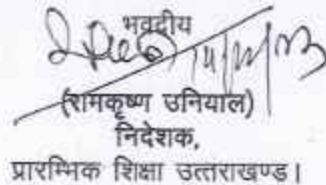 भवदीय
(रामकृष्ण उनियाल)
निदेशक,
प्रारम्भिक शिक्षा उत्तराखण्ड।